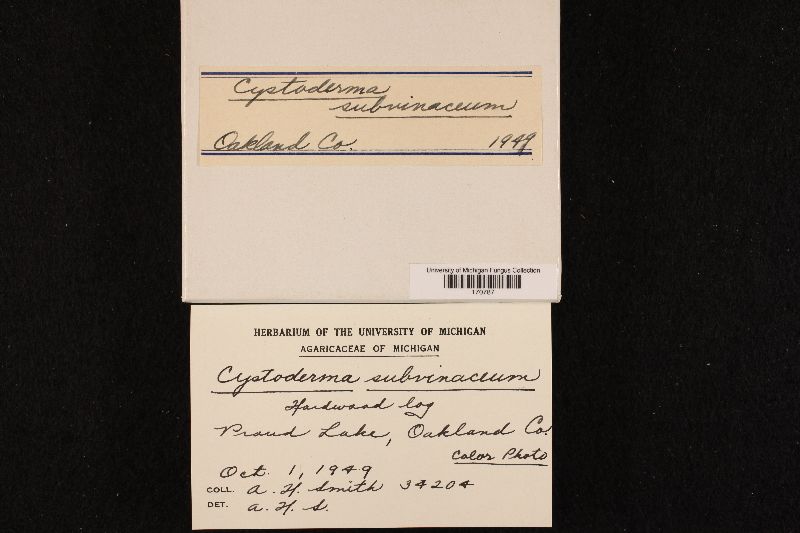 Cystoderma
subvinaceum
Oakland Co. 1949
University of Michigan Fungus Collection
HERBARIUM OF THE UNIVERSITY OF MICHIGAN
AGARICACEAE OF MICHIGAN
Cystoderma subvinaceum
Hardwood log
Proud Lake, Oakland Co.
Color Photo
Oct. 1, 1949
COLL. A. H. Smith 34204
DET. A. H. S.